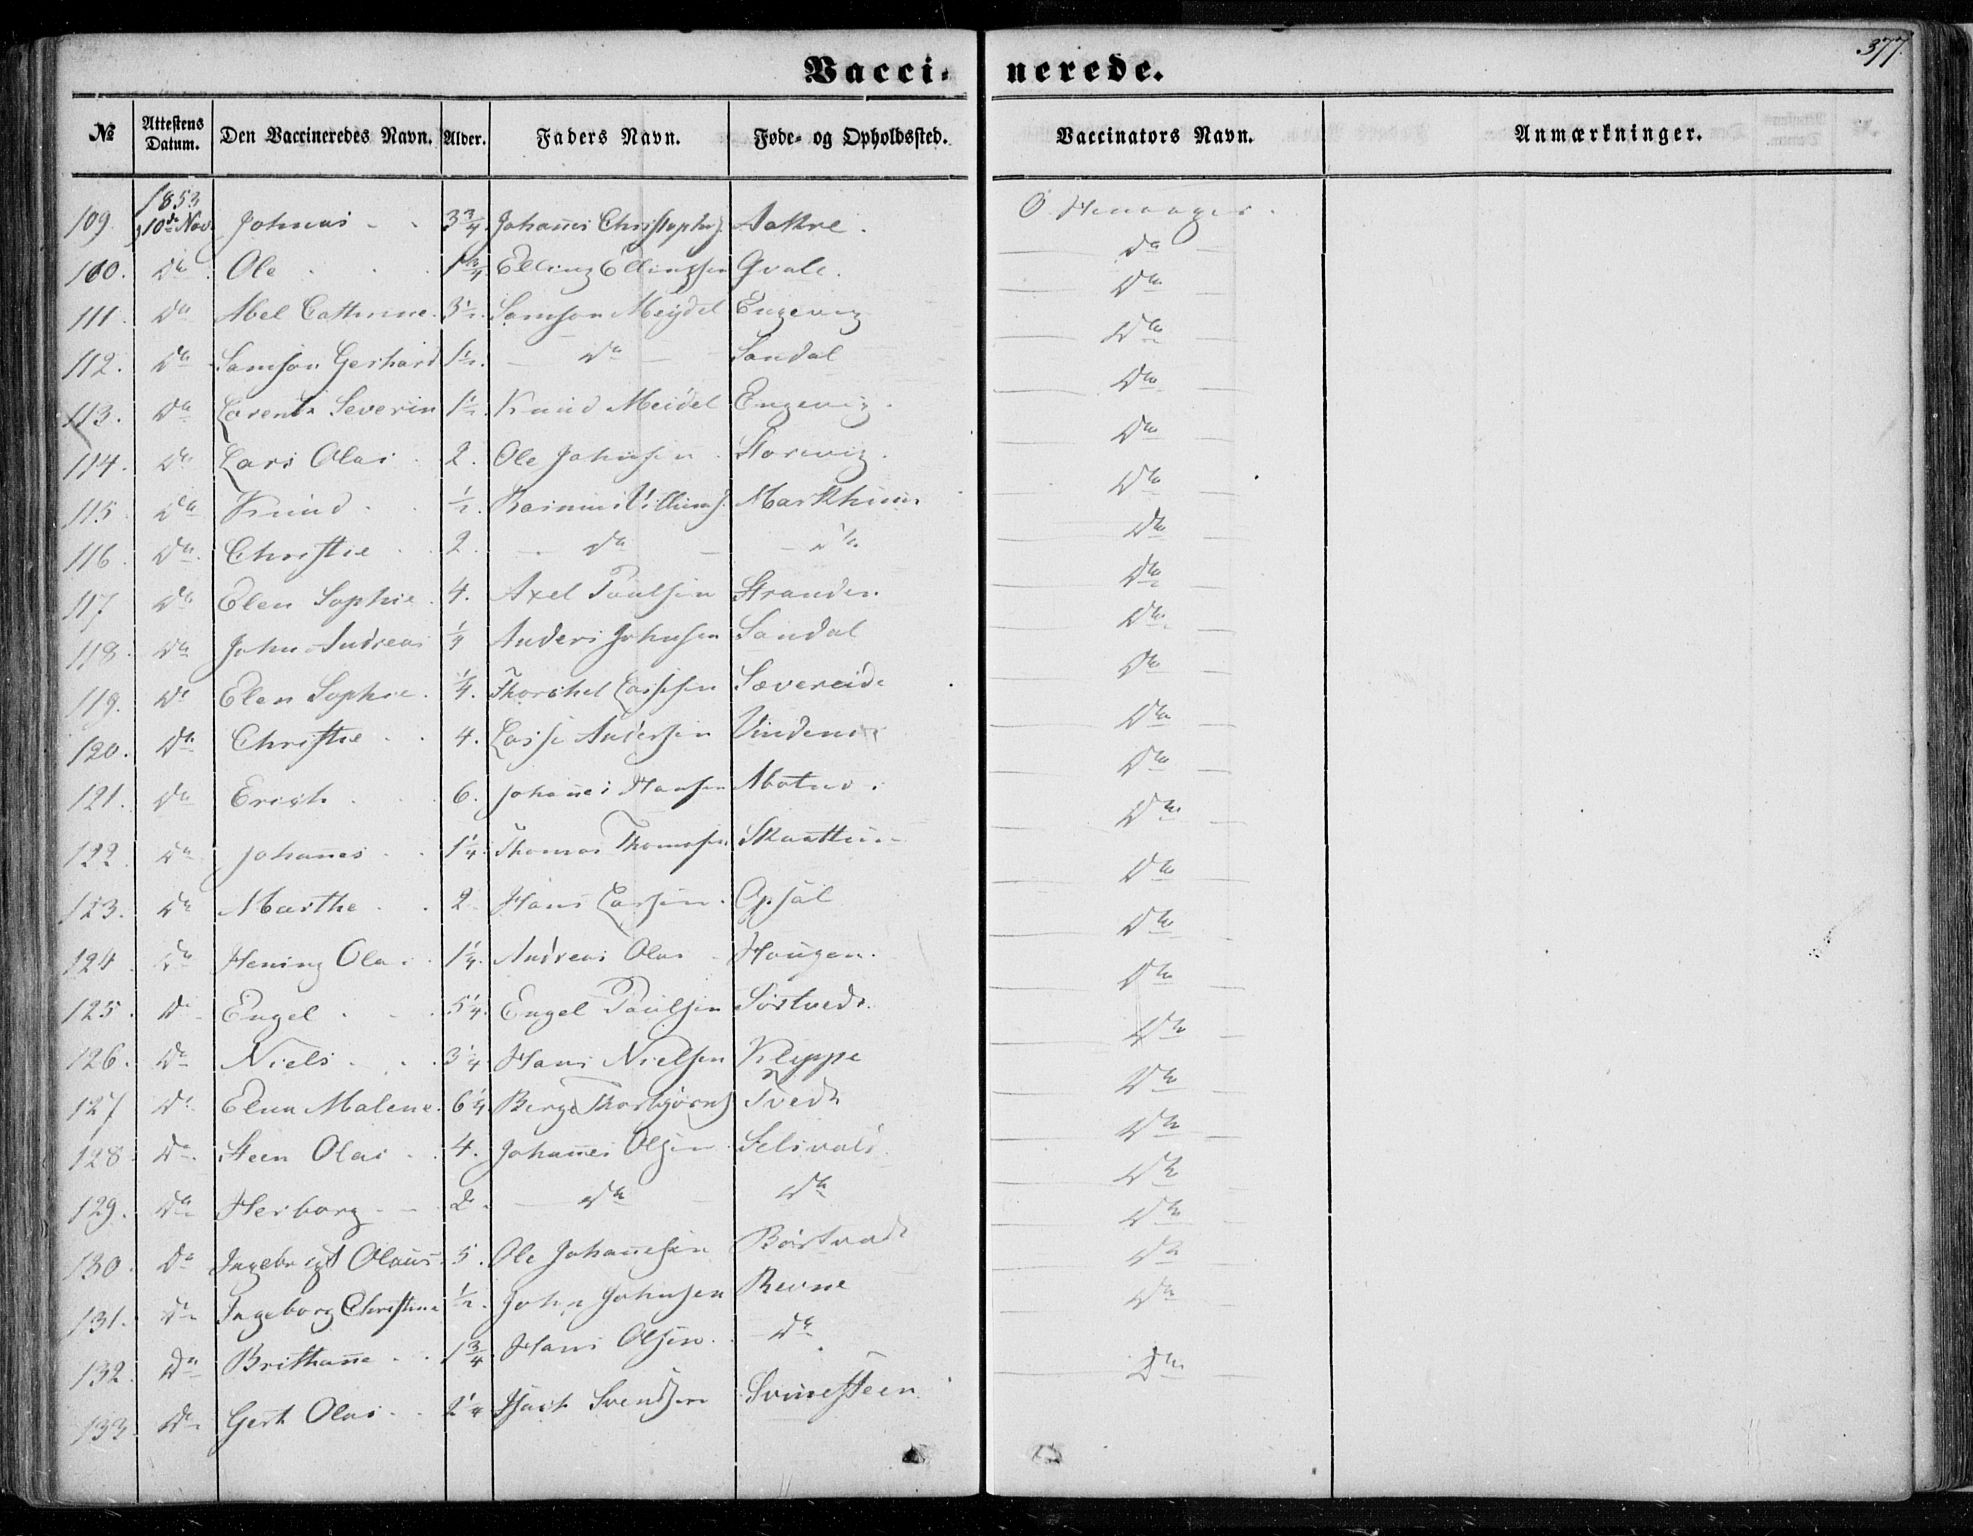 377.
Vacci- nerede.
№ Attestens Datum. Den Vaccineredes Navn. Alder. Faders Navn. Føde- og Opholdssted. Vaccinators Navn. Anmærkninger.
1853
109. 10de Nov Johannes 3 3/4 Johannes Christophs. Aakre.
110. Do Ole 1 3/4 Elling Ellingsen Qvale. Do
111. Do Abel Cathrine. 3 1/2. Samson Meydel Engevig Do
112. Do Samson Gerhard 1 1/2. Do Sandal Do
113. Do Lorents Severin 1 1/2. Knud Meidel Engevig. Do
114. Do Lars Olai 2. Ole Johnsen Storevig. Do
115. Do Knud 1/2. Rasmus Villums. Markhuus Do
116. Do Christie 2. Do Do Do
117 Do Elen Sophie. 4. Axel Paulsen Stranden Do
118. Do John Andreas 1/4 Anders Johnsen Sandal Do
119. Do Elen Sophie. 1/4. Thorchel Lassesen Sævereide Do
120. Do Christie 4. Lasse Andersen Vindenes Do
121. Do Erich 6. Johannes Hansen Do
122. Do Johannes 1 1/4. Thomas Thomasen Skaattun Do
123. Do Marthe 2. Hans Larsen. Opsal Do
124. Do Hening Olai 1 1/4. Andreas Olai Hougen. Do
125. Do Engel 5 1/4. Engel Paulsen Sørtvedt. Do
126. Do Niels 3 1/4 Hans Nielsen Kleppe Do
127 Do Elen Malene. 6 1/4 Berge Thorbjørns. Tvedt Do
128 Do Steen Olai 4. Johannes Olsen Do
129. Do Herborg 2. Do Do Do
130. Do Ingebrigt Olaus 5. Ole Johannesen Børtvedt Do
131. Do Ingeborg Christina 1/2. John Johnsen Revne Do
132. Do Brithanne 1 3/4 Hans Olsen. Do Do
133. Do Gert Olai 2 1/4 Isach Svendsen Svinesteen Do